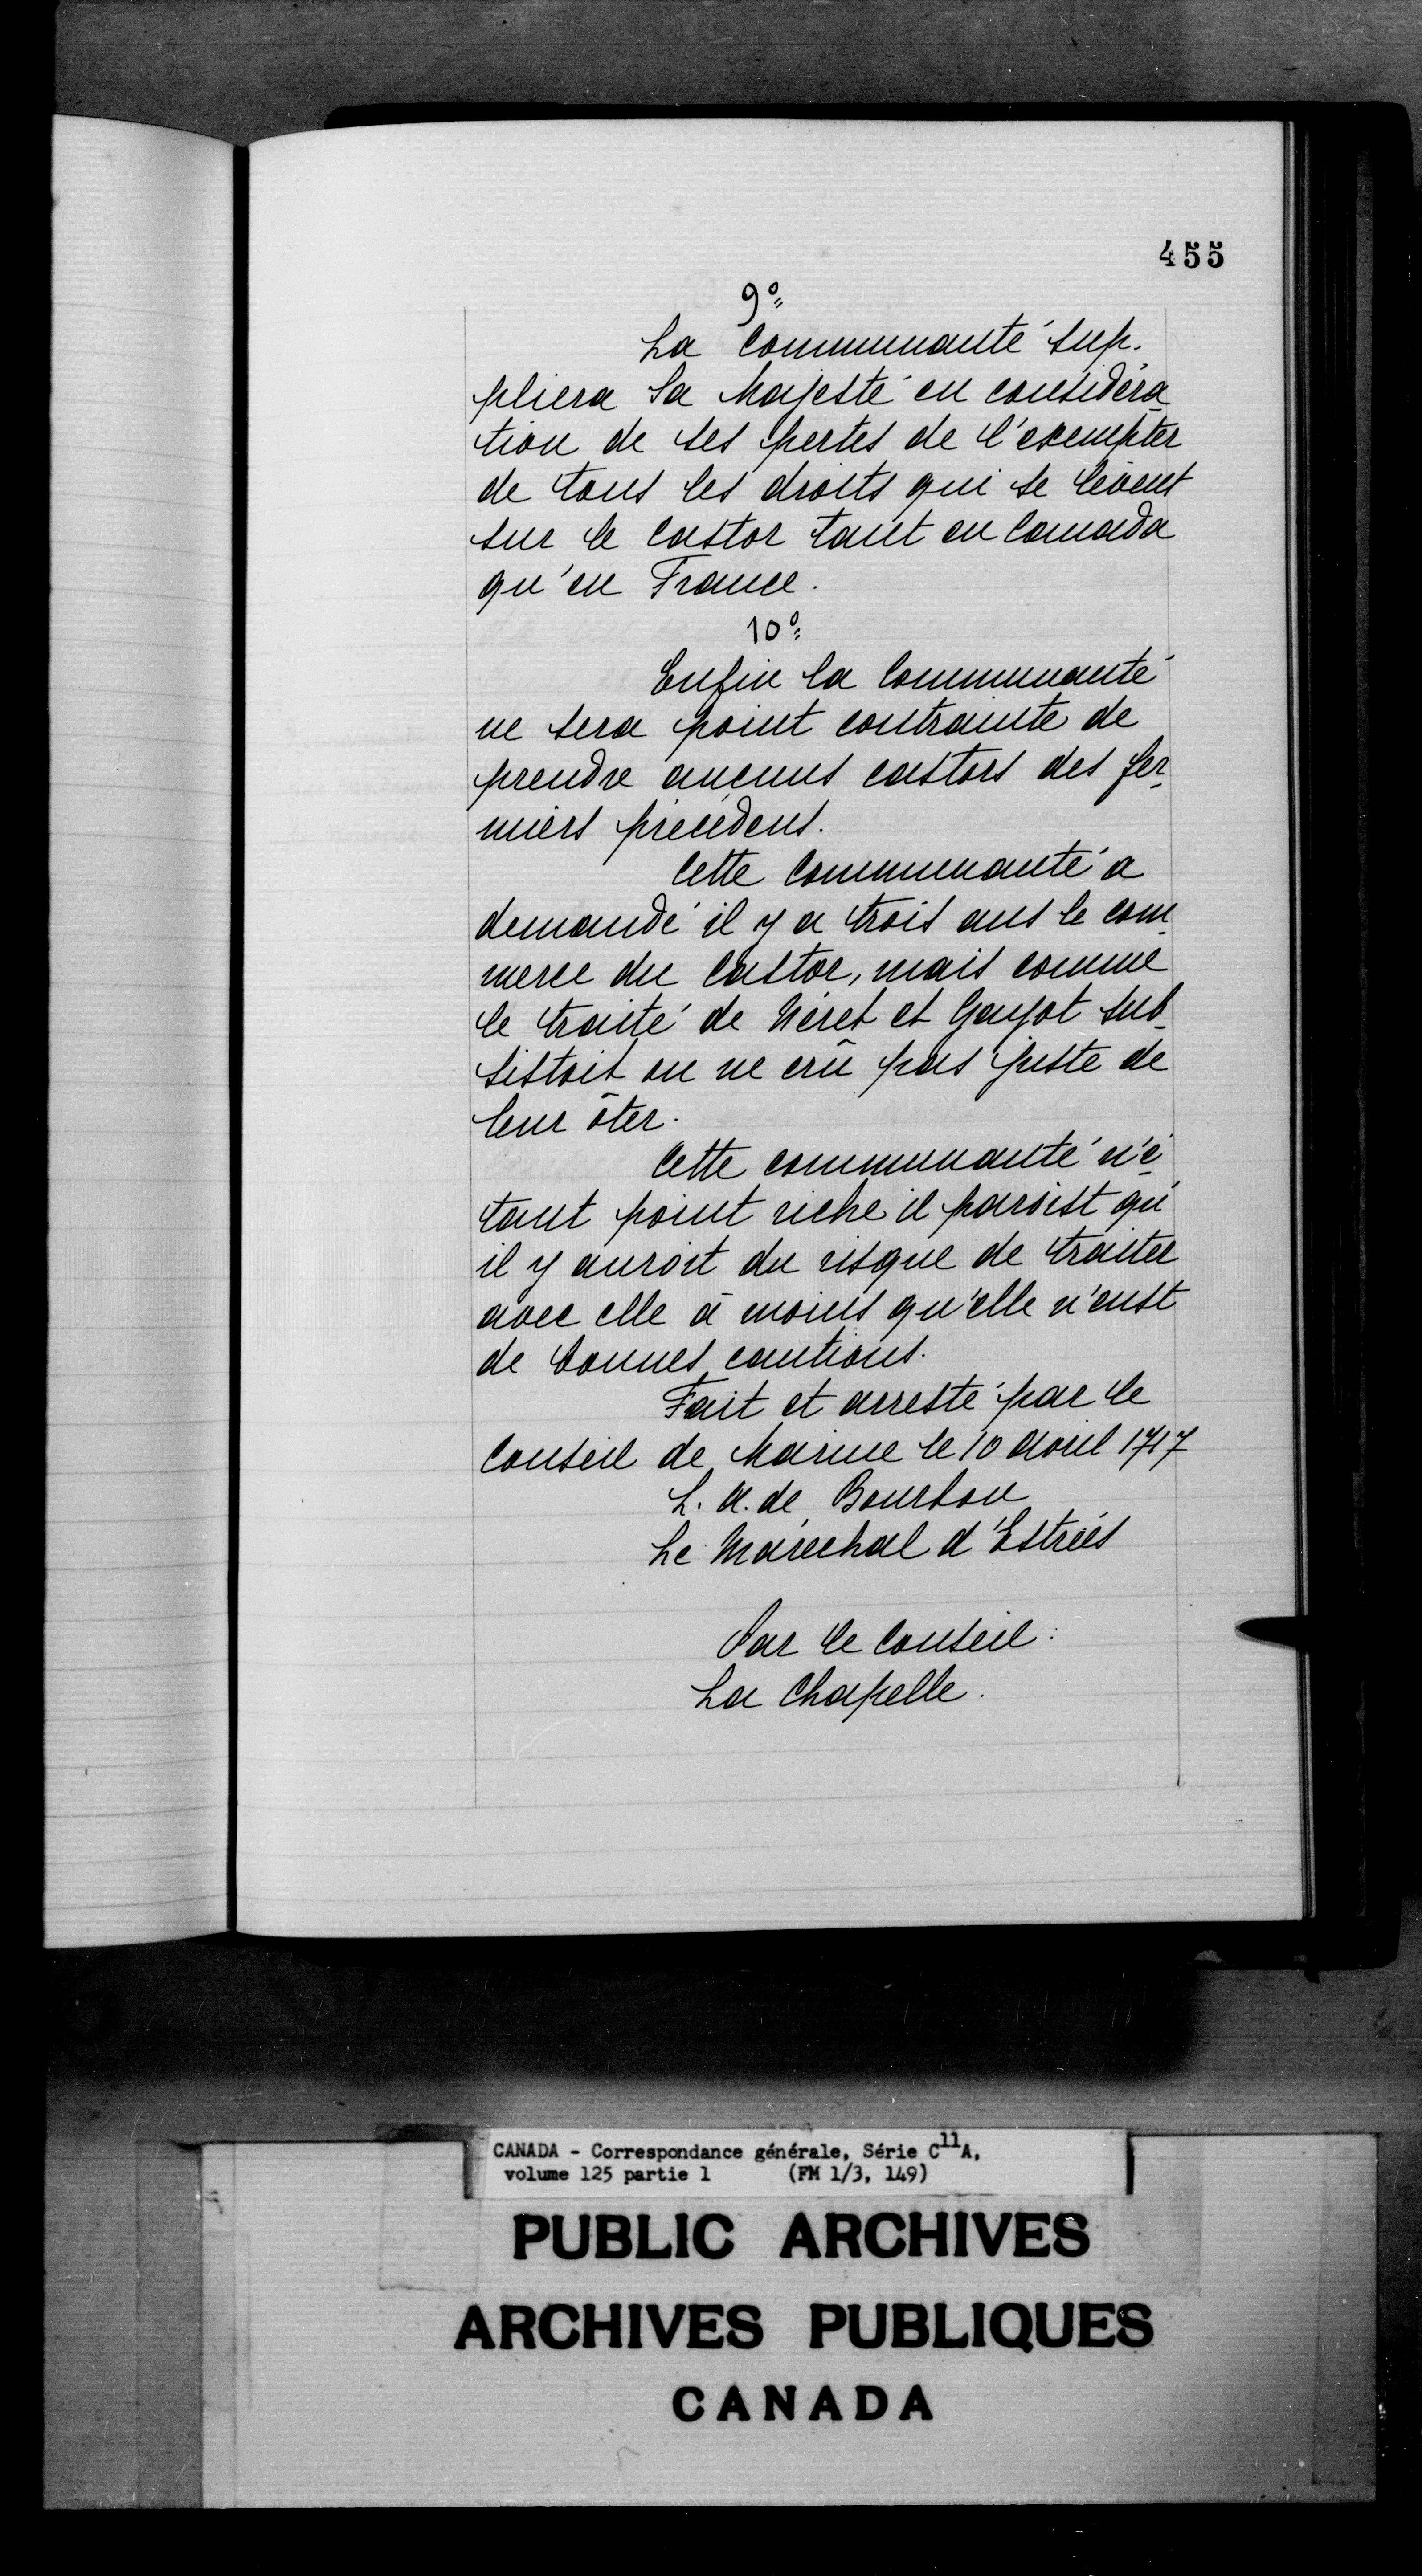 455
9º
La Communauté sup-
pliera Sa Majesté en considéra
tion de ses pertes de l'exempter
de tous les droits qui se lèvent
sur le Castor tant en Canada
qu'en France.
10º
Enfin la Communauté
ne sera point contrainte de
prendre aucuns castors des fer-
miers précédens.
Cette Communauté a
demandé il y a trois ans le com-
merce du Castor, mais comme
le traité de Néret et Gayot sub-
sistoit on ne crû pas juste de
leur ôter.
Cette communauté n'é-
tant point riche il paroist qu'
il y auroit du risque de traiter
avec elle à moins qu'elle n'eust
de bonnes cautions.
Fait et arresté par le
Conseil de Marine le 10 Avril 1717
L. A. de Bourbon
Le Maréchal d'Estrées
Par le Conseil:
La Chapelle.
CANADA - Correspondance générale, Série C11A,
volume 125 partie 1 (FM 1/3, 149)
PUBLIC ARCHIVES
ARCHIVES PUBLIQUES
CANADA